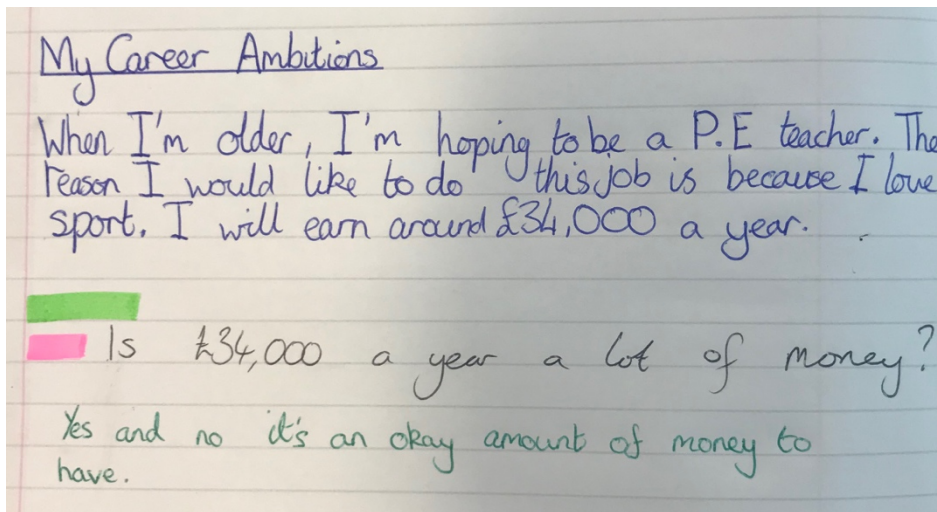 My Career Ambitions
When I'm older, I'm hoping to be a P.E teacher. The
reason I would like to do this job is because I love
sport. I will earn around £34,000 a year.
Is £34,000 a year a lot of money?
Yes and no it's an okay amount of money to
have.